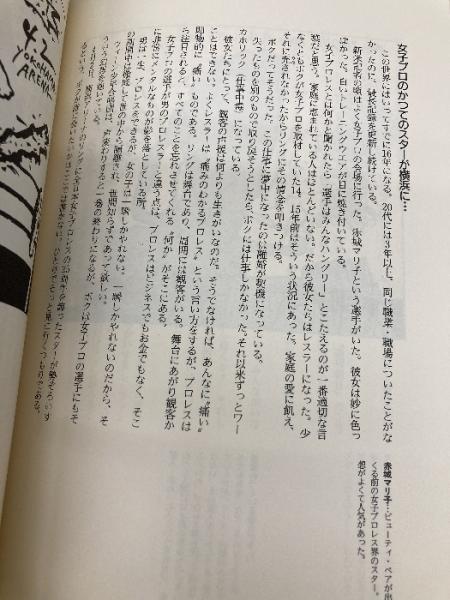 女子プロのかつてのスターが横浜に…
この世界にはいってすでに16年になる。20代には3年以上、同じ職業・職場についたことがな
かったのに、最長記録を更新し続けている。
新米記者の頃はよく女子プロの会場に行った。赤城マリ子という選手がいた。彼女は妙に色っ
ぽかった。白いトレーニングウエアが目に焼き付いている。
女子プロレスとは何かと聞かれたら「選手はみんなハングリー」とこたえるのが一番適切な言
葉だと思う。家庭に恵まれている人はほとんどいない。だから彼女たちはレスラーになった。少
なくともボクが女子プロを取材していた頃、15年前はそういう状況にあった。家庭の愛に飢え、
それに充されなかったからリングにその情念を叩きつける。
ボクだってそうだった。この仕事に夢中になったのは離婚が契機になっている。
失ったものを別のもので取り戻そうとしたら、ボクには仕事しかなかった。それ以来ずっとワー
カホリック（仕事中毒）になっている。
彼女たちにとって、観客の声援は何よりも生きがいなのだ。そうでなければ、あんなに“痛い”
ことはできない。よくレスラーは「痛みのわかるプロレス」という言い方をするが、プロレスは
即物的に“痛い”ものである。リングは舞台であり、周囲には観客がいる。舞台にあがり観客か
ら注目されると、すべてのことを忘れさせてくれる“何か”がそこにある。
女子プロの選手が男のプロレスラーと違う点は、プロレスはビジネスでもお金でもなく、そこ
に非常にメンタルなものが影を落としている所。
男は一生、プロレスをできるが、女の子は一瞬しかやれない。一瞬しかやれないのだから、そ
の期間中は徹底して世の中から隔離され、世間知らずであって欲しい。
るという。
赤城マリ子…ビューティ・ペアが出
くる前の女子プロレス界のスター。
想がよくて人気があった。
4.2
YOKOHAMA
ARENA